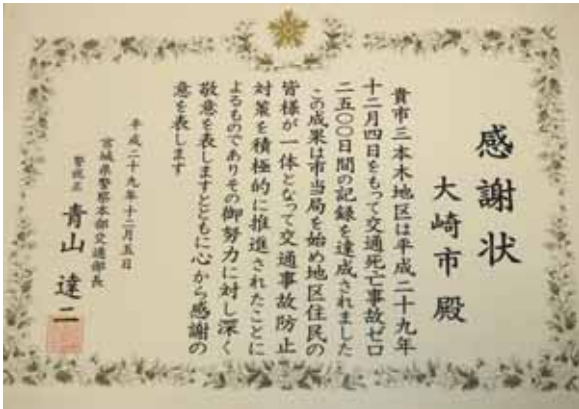 感謝状
大崎市殿
貴市三本木地区は平成二十九年
十二月四日をもって交通死亡事故ゼロ
二五〇〇日間の記録を達成されました
この成果は市当局を始め地区住民の
皆様が一体となって交通事故防止
対策を積極的に推進されたことに
よるものでありその御努力に対し深く
敬意を表しますとともに心から感謝の
意を表します
平成二十九年十二月五日
宮城県警察本部交通部長
警視正 青山達二